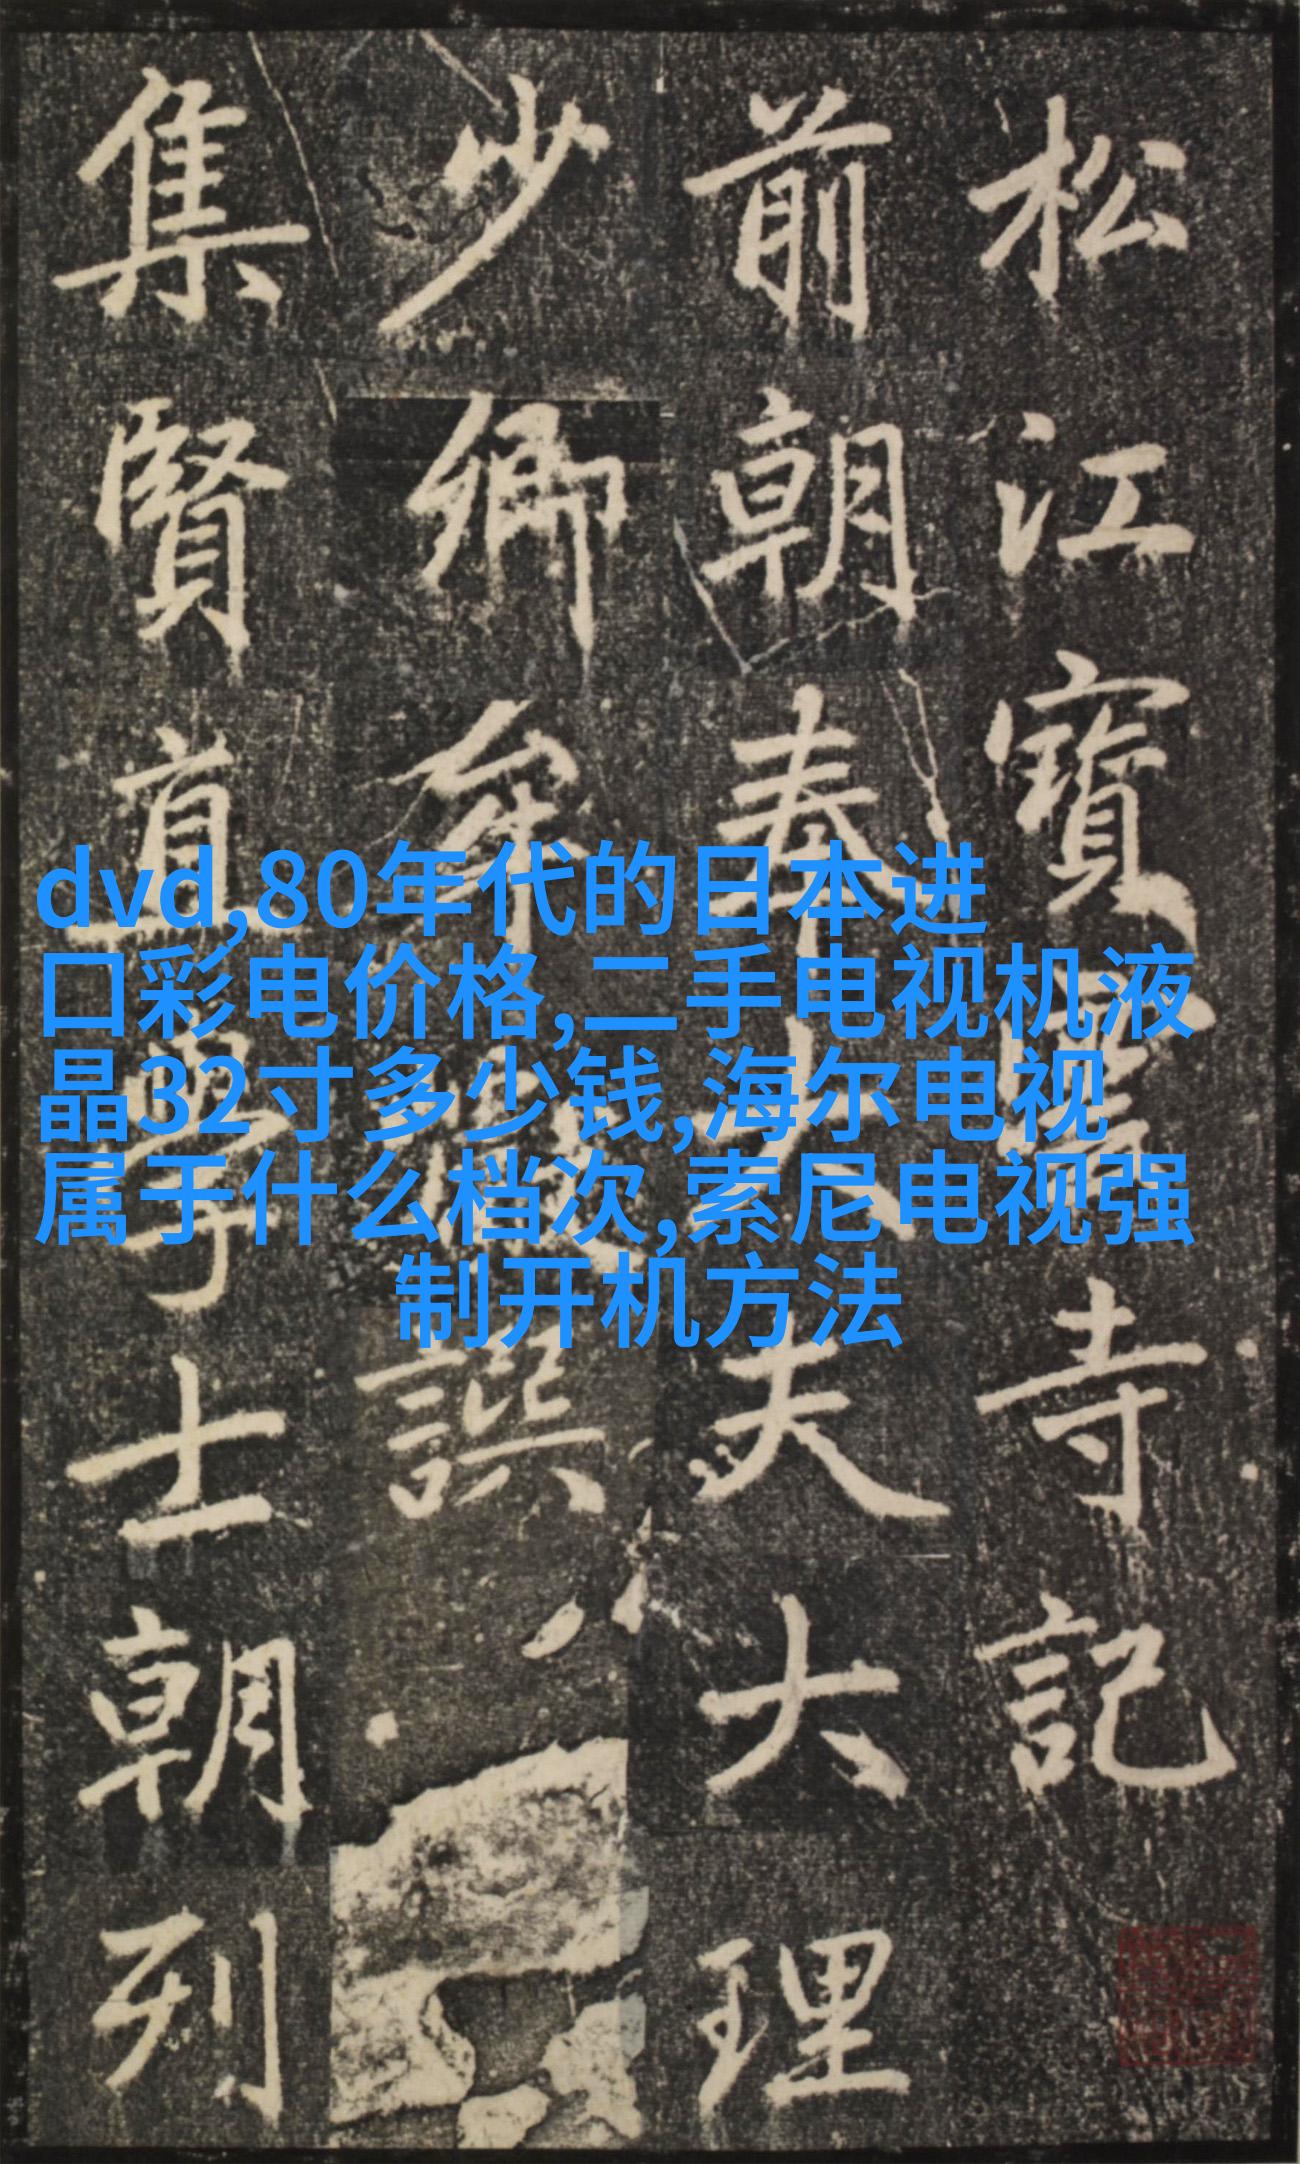 松江寶雲寺記
前朝奉大夫大理
少卿牟巘譔
集賢直學士朝列
dvd,80年代的日本进
口彩电价格,二手电视机液
晶32寸多少钱,海尔电视
属于什么档次,索尼电视强
制开机方法